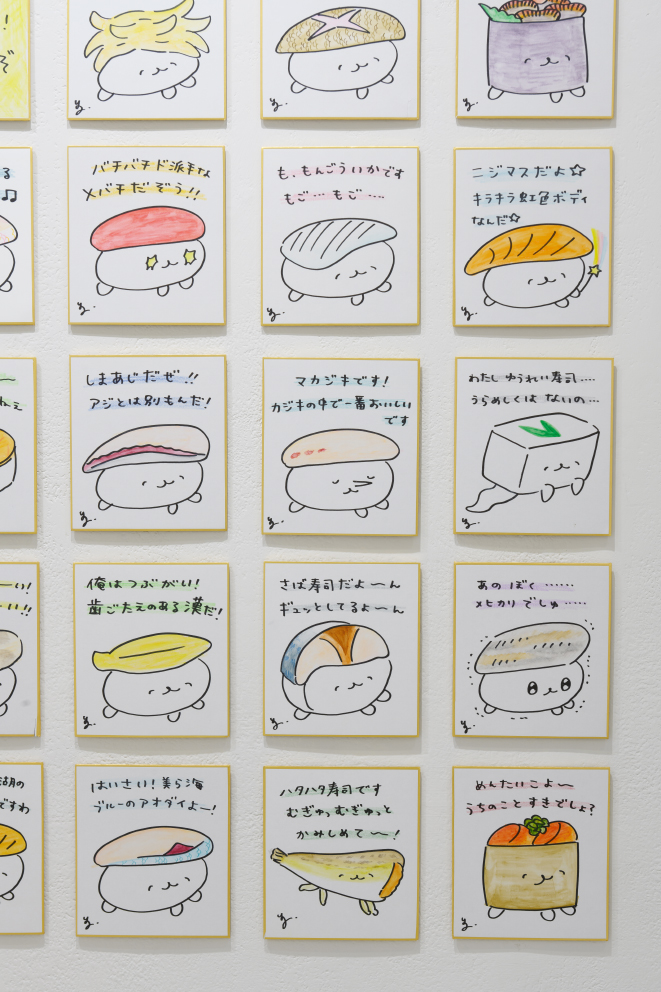 バチバチド派手な
メバチだぞう!!
も、もんごういかです
もご… もご ….
ニジマスだよ☆
キラキラ虹色ボディ
なんだ☆
しまあじだぜ.!!
アジとは別もんだ!
マカジキです!
カジキの中で一番おいしい
です
わたし ゆうれい寿司….
うらめしくは ないの…
俺はつぶがい!
歯ごたえのある漢だ!
さば寿司だよ〜ん
ギュッとしてるよ〜ん
あの ぼく ……
メヒカリ でしゅ……
はいさい!美ら海
ブルーのアオダイよー!
ハタハタ寿司です
むぎゅっむぎゅっと
かみしめて 〜!
めんたいこよ〜
うちのこと すきでしょ?